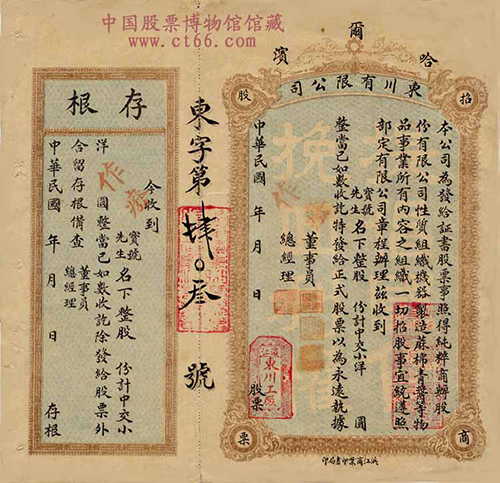 中国股票博物馆馆藏
www.ct66.com
哈爾濱
東川有限公司
招
股
商
票
本公司為發給証書股票事照得純粹商辦股
份有限公司性質組織機器製造蔴棉青蓆等物
品事業所有內容之組織一切招股事宜統遵照
部定有限公司章程辦理茲收到
寶號
先生
名下整股
份計中交小洋
圓
整當已如數收訖特發給正式股票以為永遠執據
董事員
總經理
中華民國 年 月 日
股票
東川工廠
東字第肆〇叄號
存根
今收到
寶號
先生
名下整股
份計中交小
洋
圓整當已如數收訖除發給股票外
合留存根備查
董事員
總經理
中華民國 年 月 日
存根
作廢
濱江商業印書局印